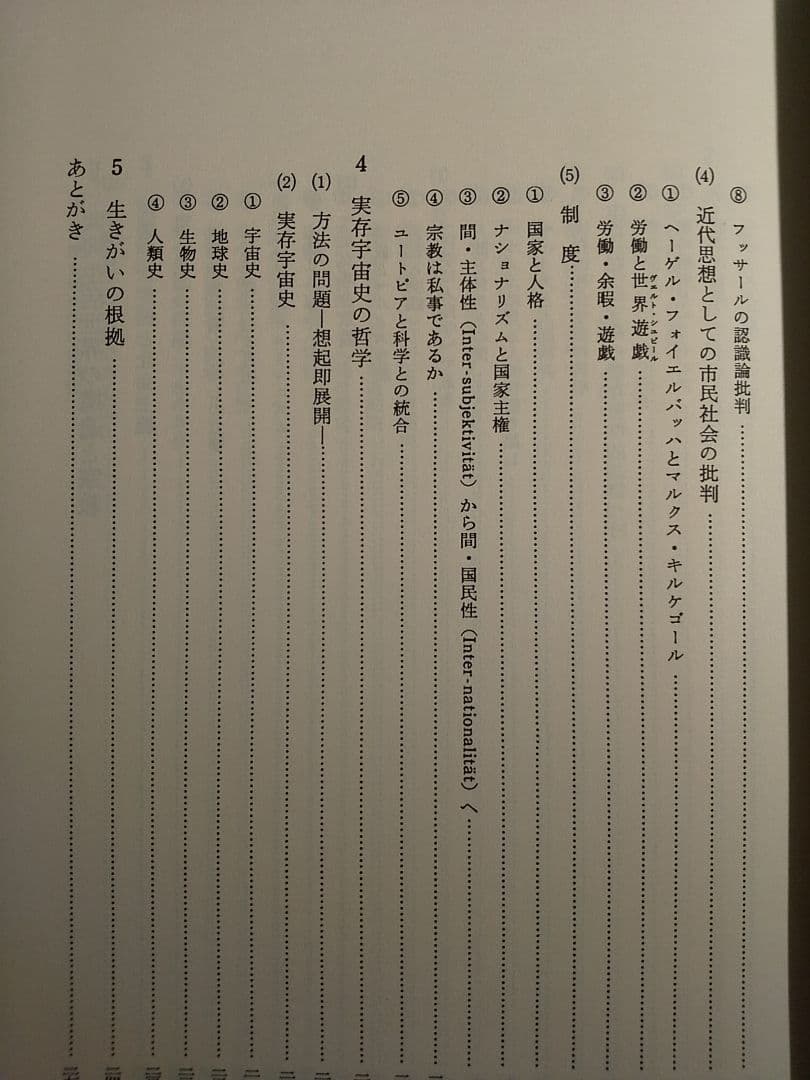 ⑧ フッサールの認識論批判
(4) 近代思想としての市民社会の批判
① ヘーゲル・フォイエルバッハとマルクス・キルケゴール
② 労働と世界遊戯
ヴェルト・シュピール
③ 労働・余暇・遊戯
(5) 制度
① 国家と人格
② ナショナリズムと国家主権
③ 間・主体性(Inter-subjektivität)から間・国民性(Inter-nationalität)へ
④ 宗教は私事であるか
⑤ ユートピアと科学との統合
4 実存宇宙史の哲学
(1) 方法の問題―想起即展開―
(2) 実存宇宙史
① 宇宙史
② 地球史
③ 生物史
④ 人類史
5 生きがいの根拠
あとがき